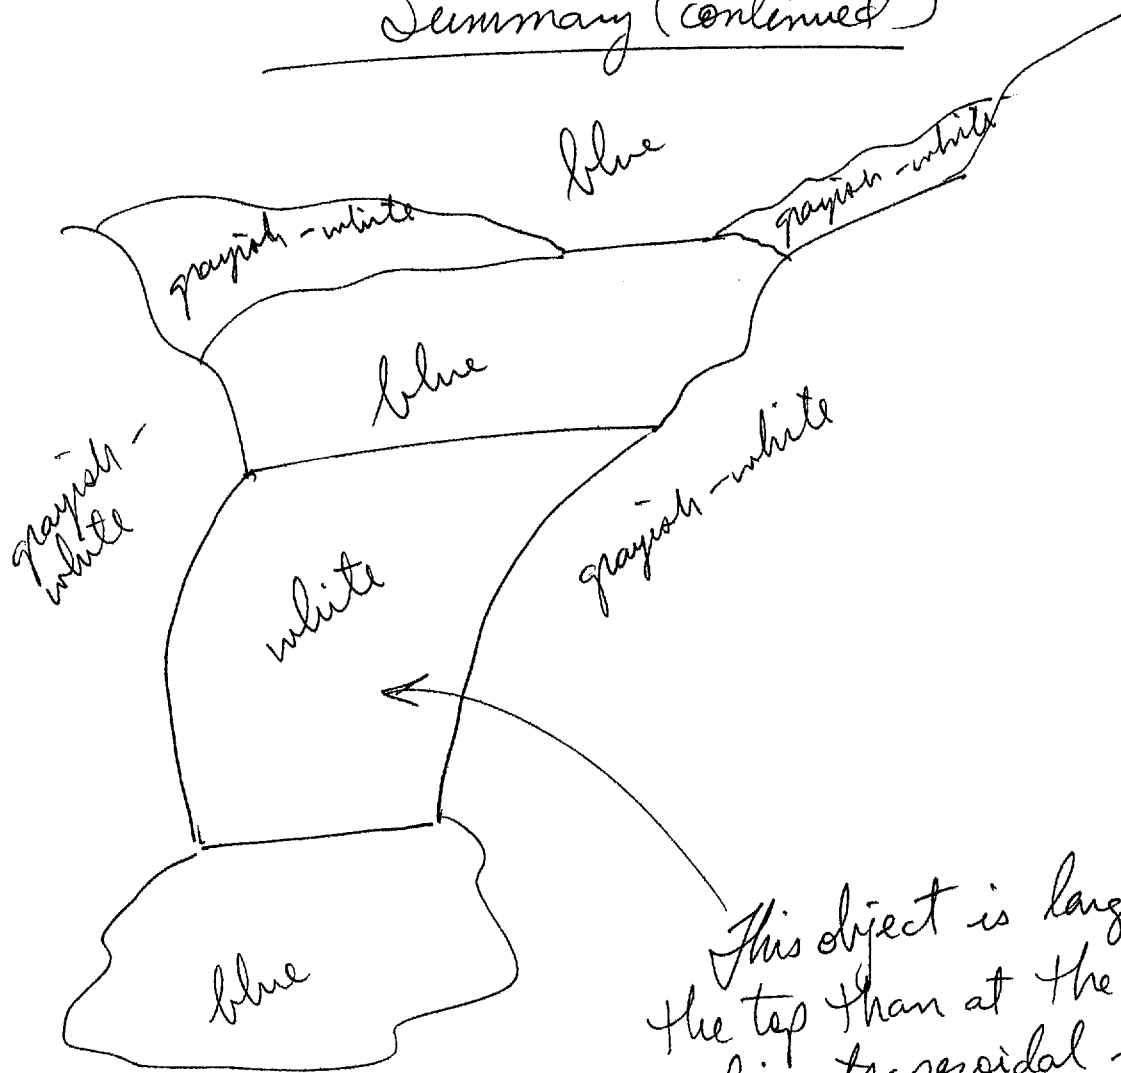 Summary (continued)
blue
grayish-white
grayish-white
blue
grayish-
white
grayish-white
white
This object is
the top than at the
blue